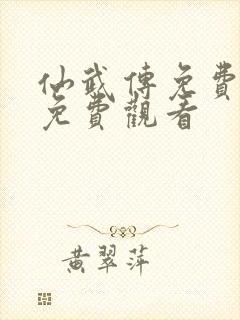 仙武傳免費
免費觀看
黃翠萍